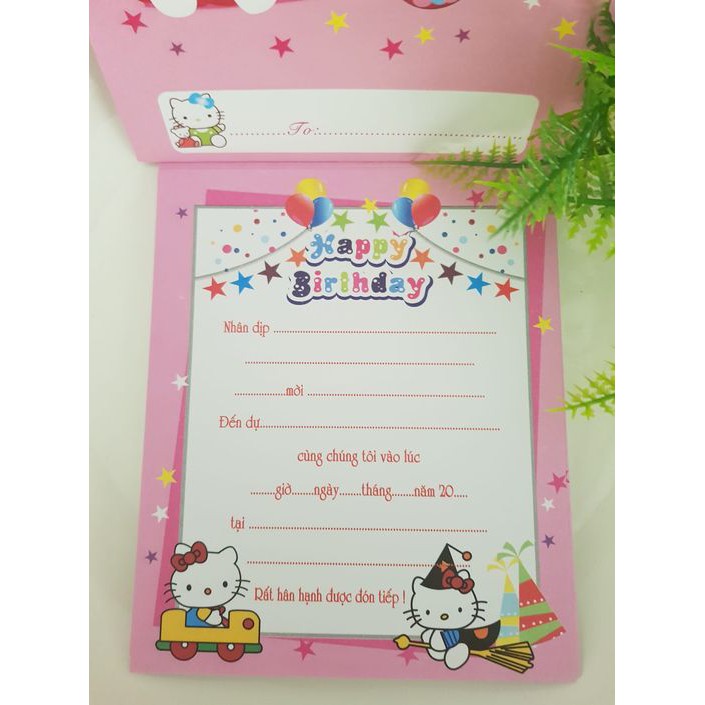 ..............To:..............................
Happy
Birthday
Nhân dịp ..............................................................
................................................................
..............mời .................................................
Đến dự..................................................................
cùng chúng tôi vào lúc
.......giờ.......ngày......tháng......năm 20....
tại ..................................................................
..............................................................
Rất hân hạnh được đón tiếp !